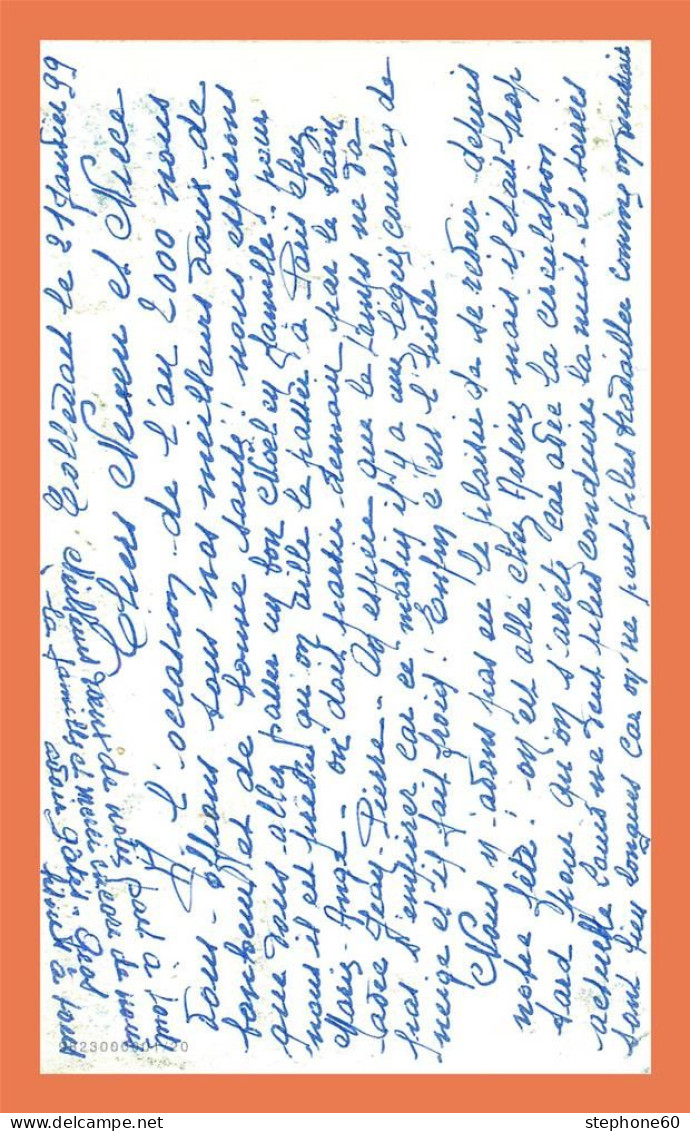 le 21 Janvier 99
Chers Neveu et Nièce
A l'occasion de l'an 2000 nous
vous offrons tous nos meilleurs vœux de
bonheur et de bonne santé: nous espérons
que vous allez passer un bon Noël en famille: pour
nous il est prévu qu'on aille le passer à Paris chez
Marie-Ange - on doit partir demain par le train
avec Jean-Pierre - On espère que le temps ne va
pas s'empirer car ce matin il y a une légère couche de
neige et il fait froid! Enfin c'est l'hiver
Nous n'avons pas eu le plaisir de se revoir depuis
notre fête: on est allé chez mais il était trop
tard pour qu'on s'arrête car avec la circulation
actuelle Louis ne veut plus conduire la nuit - les soirées
sont bien longues car on ne peut plus travailler comme on voudrait
Meilleurs vœux de nous part à toute
la famille et merci encore de nous
avoir gâtés: Gros
bisous à tous
9823000001/20
stephone60